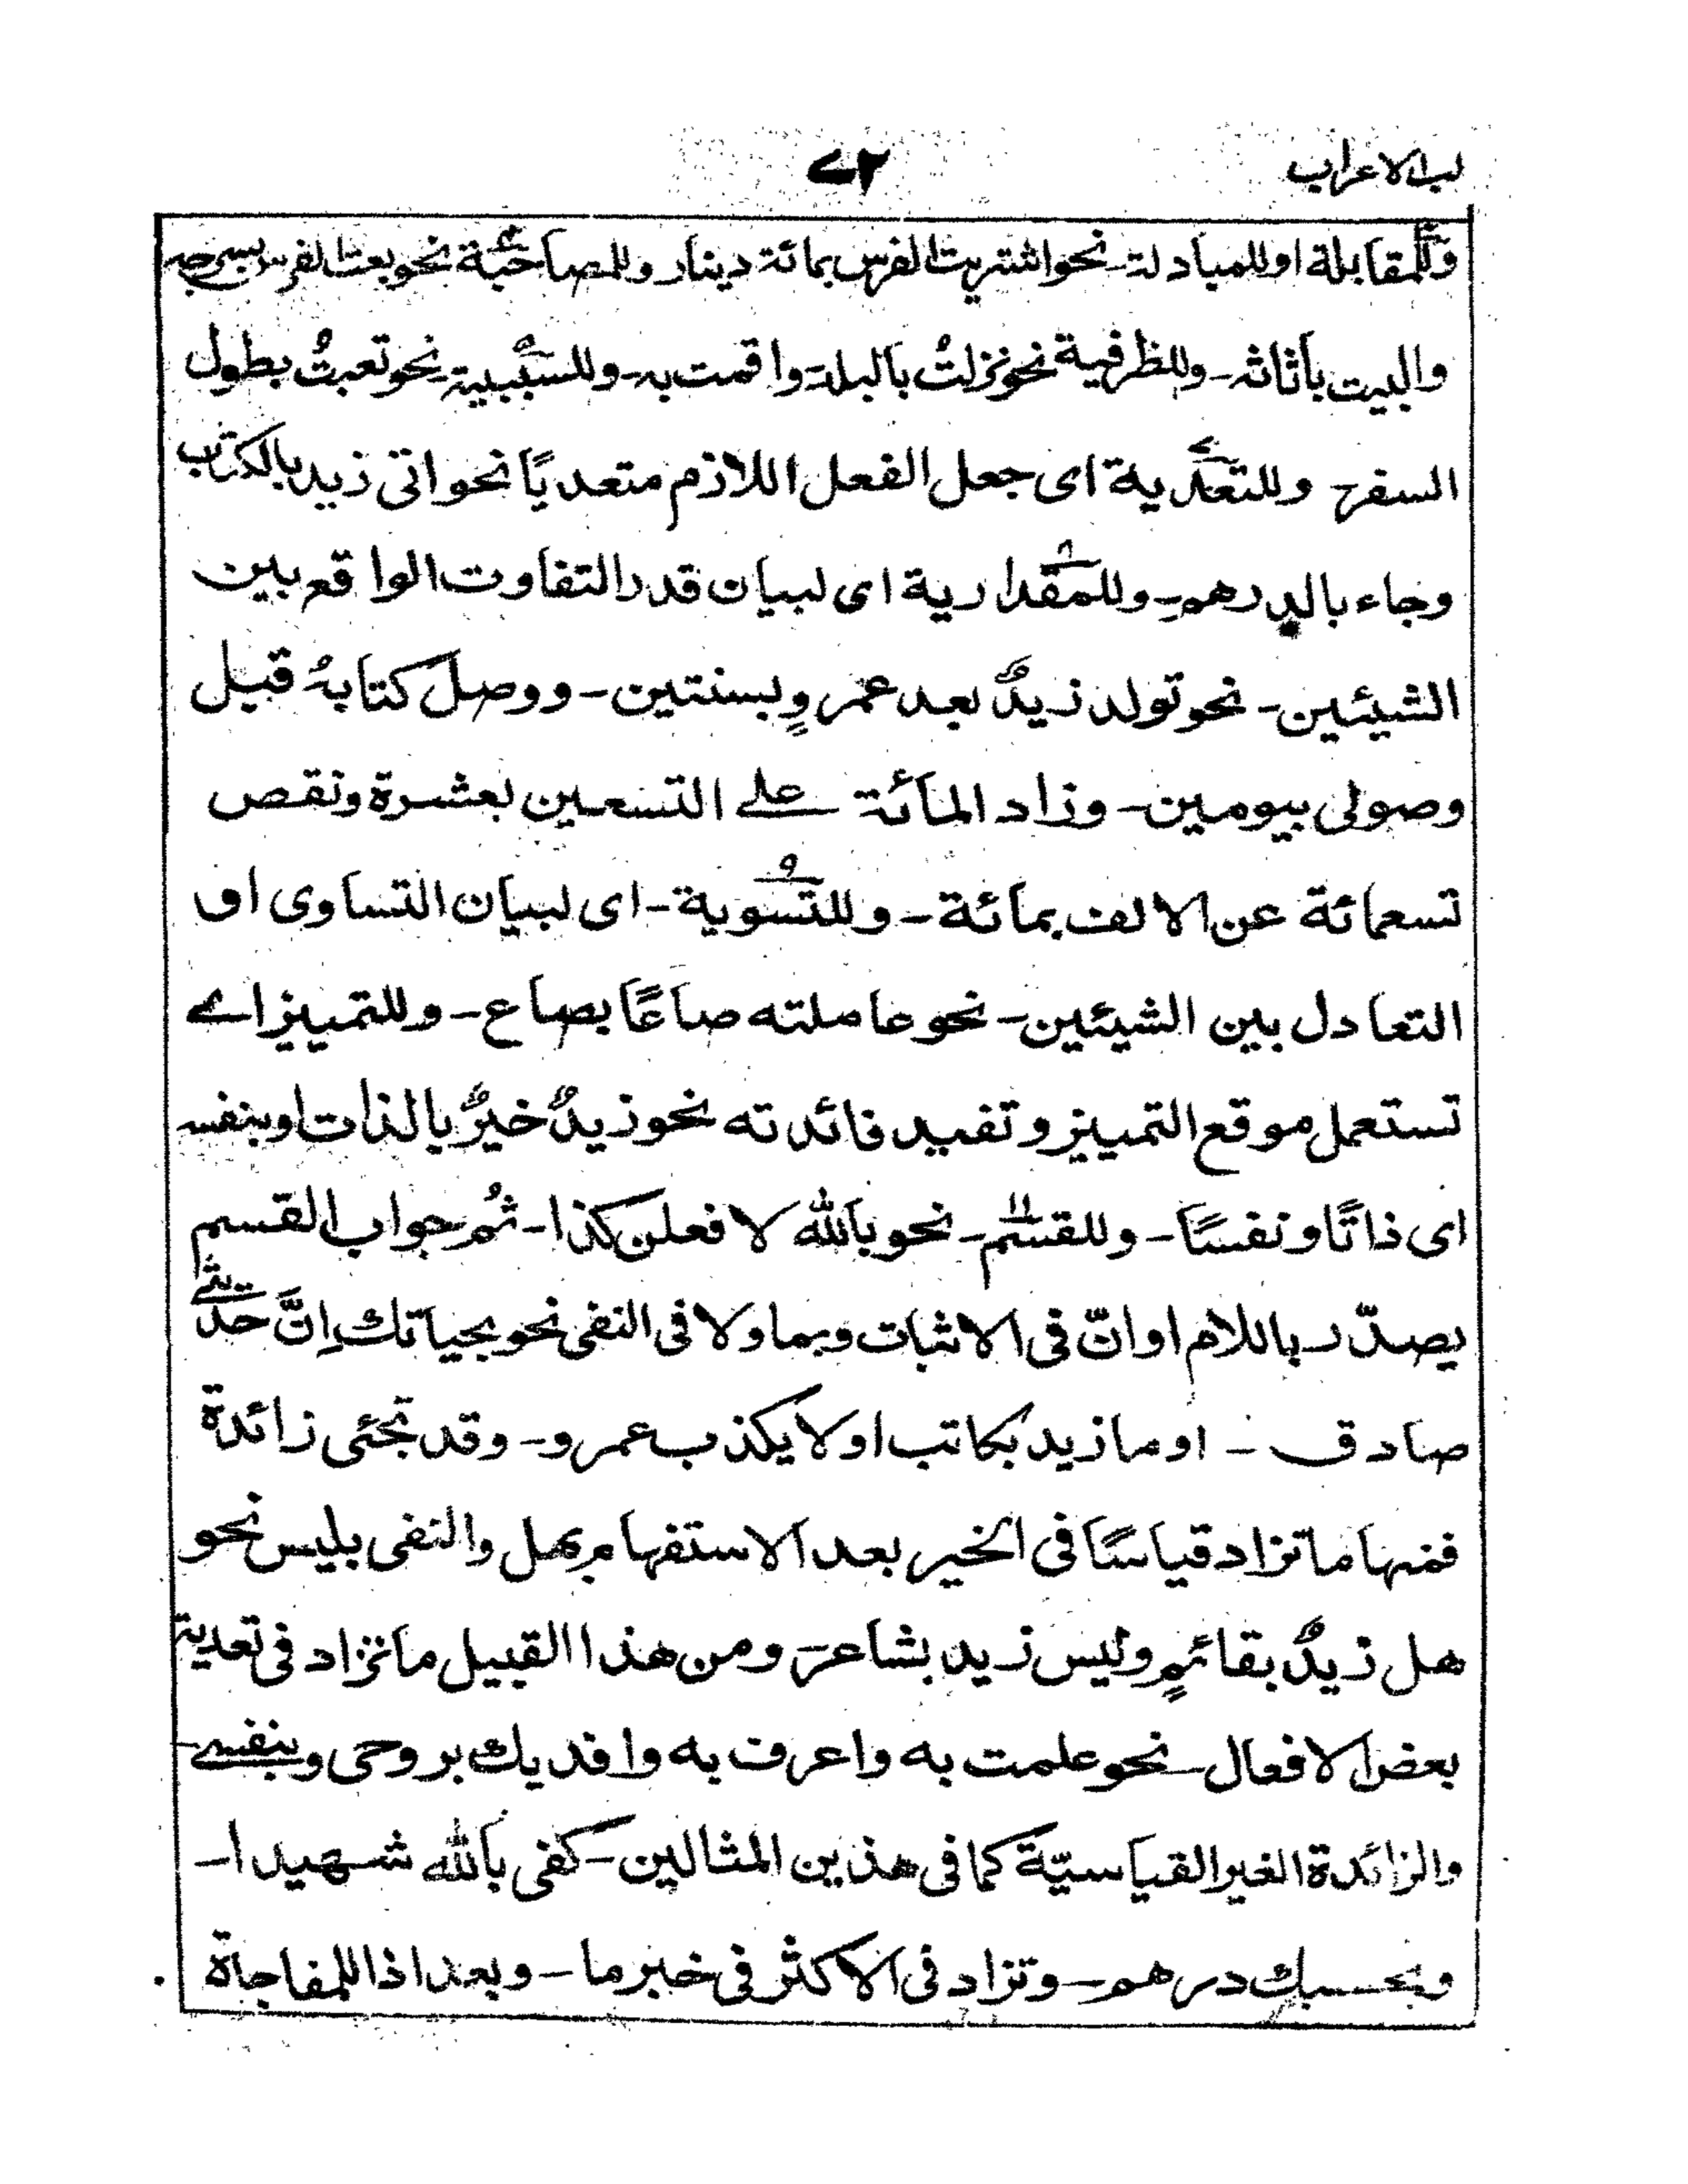 لب الاعراب
٧٢
وللمقابلة او للمبادلة- نحو اشتريت الفرس بمائة دينار وللمصاحبة نحو بعت الفرس بسرجه
والبيت بأثاثه- وللظرفية نحو نزلتُ بالبلد- واقمت به- وللسببية- نحو تعبتُ بطول
السفر- وللتعدية اى جعل الفعل اللازم متعديًا نحو اتى زيد بالكتاب
وجاء بالدرهم- وللمقدارية اى لبيان قدر التفاوت الواقع بين
الشيئين- نحو تولد زيدٌ بعد عمروٍ بسنتين- ووصل كتابهُ قبل
وصولى بيومين- وزاد المائة على التسعين بعشرة ونقص
تسعمائة عن الالف بمائة- وللتسوية- اى لبيان التساوى او
التعادل بين الشيئين- نحو عاملته صاعًا بصاع- وللتمييز اے
تستعمل موقع التمييز وتفيد فائدته نحو زيدٌ خيرٌ بالذات او بنفسه
اى ذاتًا ونفسًا- وللقسم- نحو بالله لافعلن كذا- ثُم جواب القسم
يصدّر باللام او انّ فى الاثبات وبما ولا فى النفى نحو بحياتك اِنَّ حديثے
صادق- او ما زيد بكاتب او لا يكذب عمرو- وقد تجئى زائدة
فمنها ما تزاد قياسًا فى الخبر بعد الاستفهام بهل والنفى بليس نحو
هل زيدٌ بقائمٍ وليس زيد بشاعر- ومن هذا القبيل ما تزاد فى تعدية
بعض الافعال- نحو علمت به واعرف به وافديك بروحى وبنفسے-
والزائدة الغير القياسيّة كما فى هذين المثالين- كفى بالله شهيدا-
وبحسبك درهم- وتزاد فى الاكثر فى خبر ما- وبعد اذا للمفاجاة